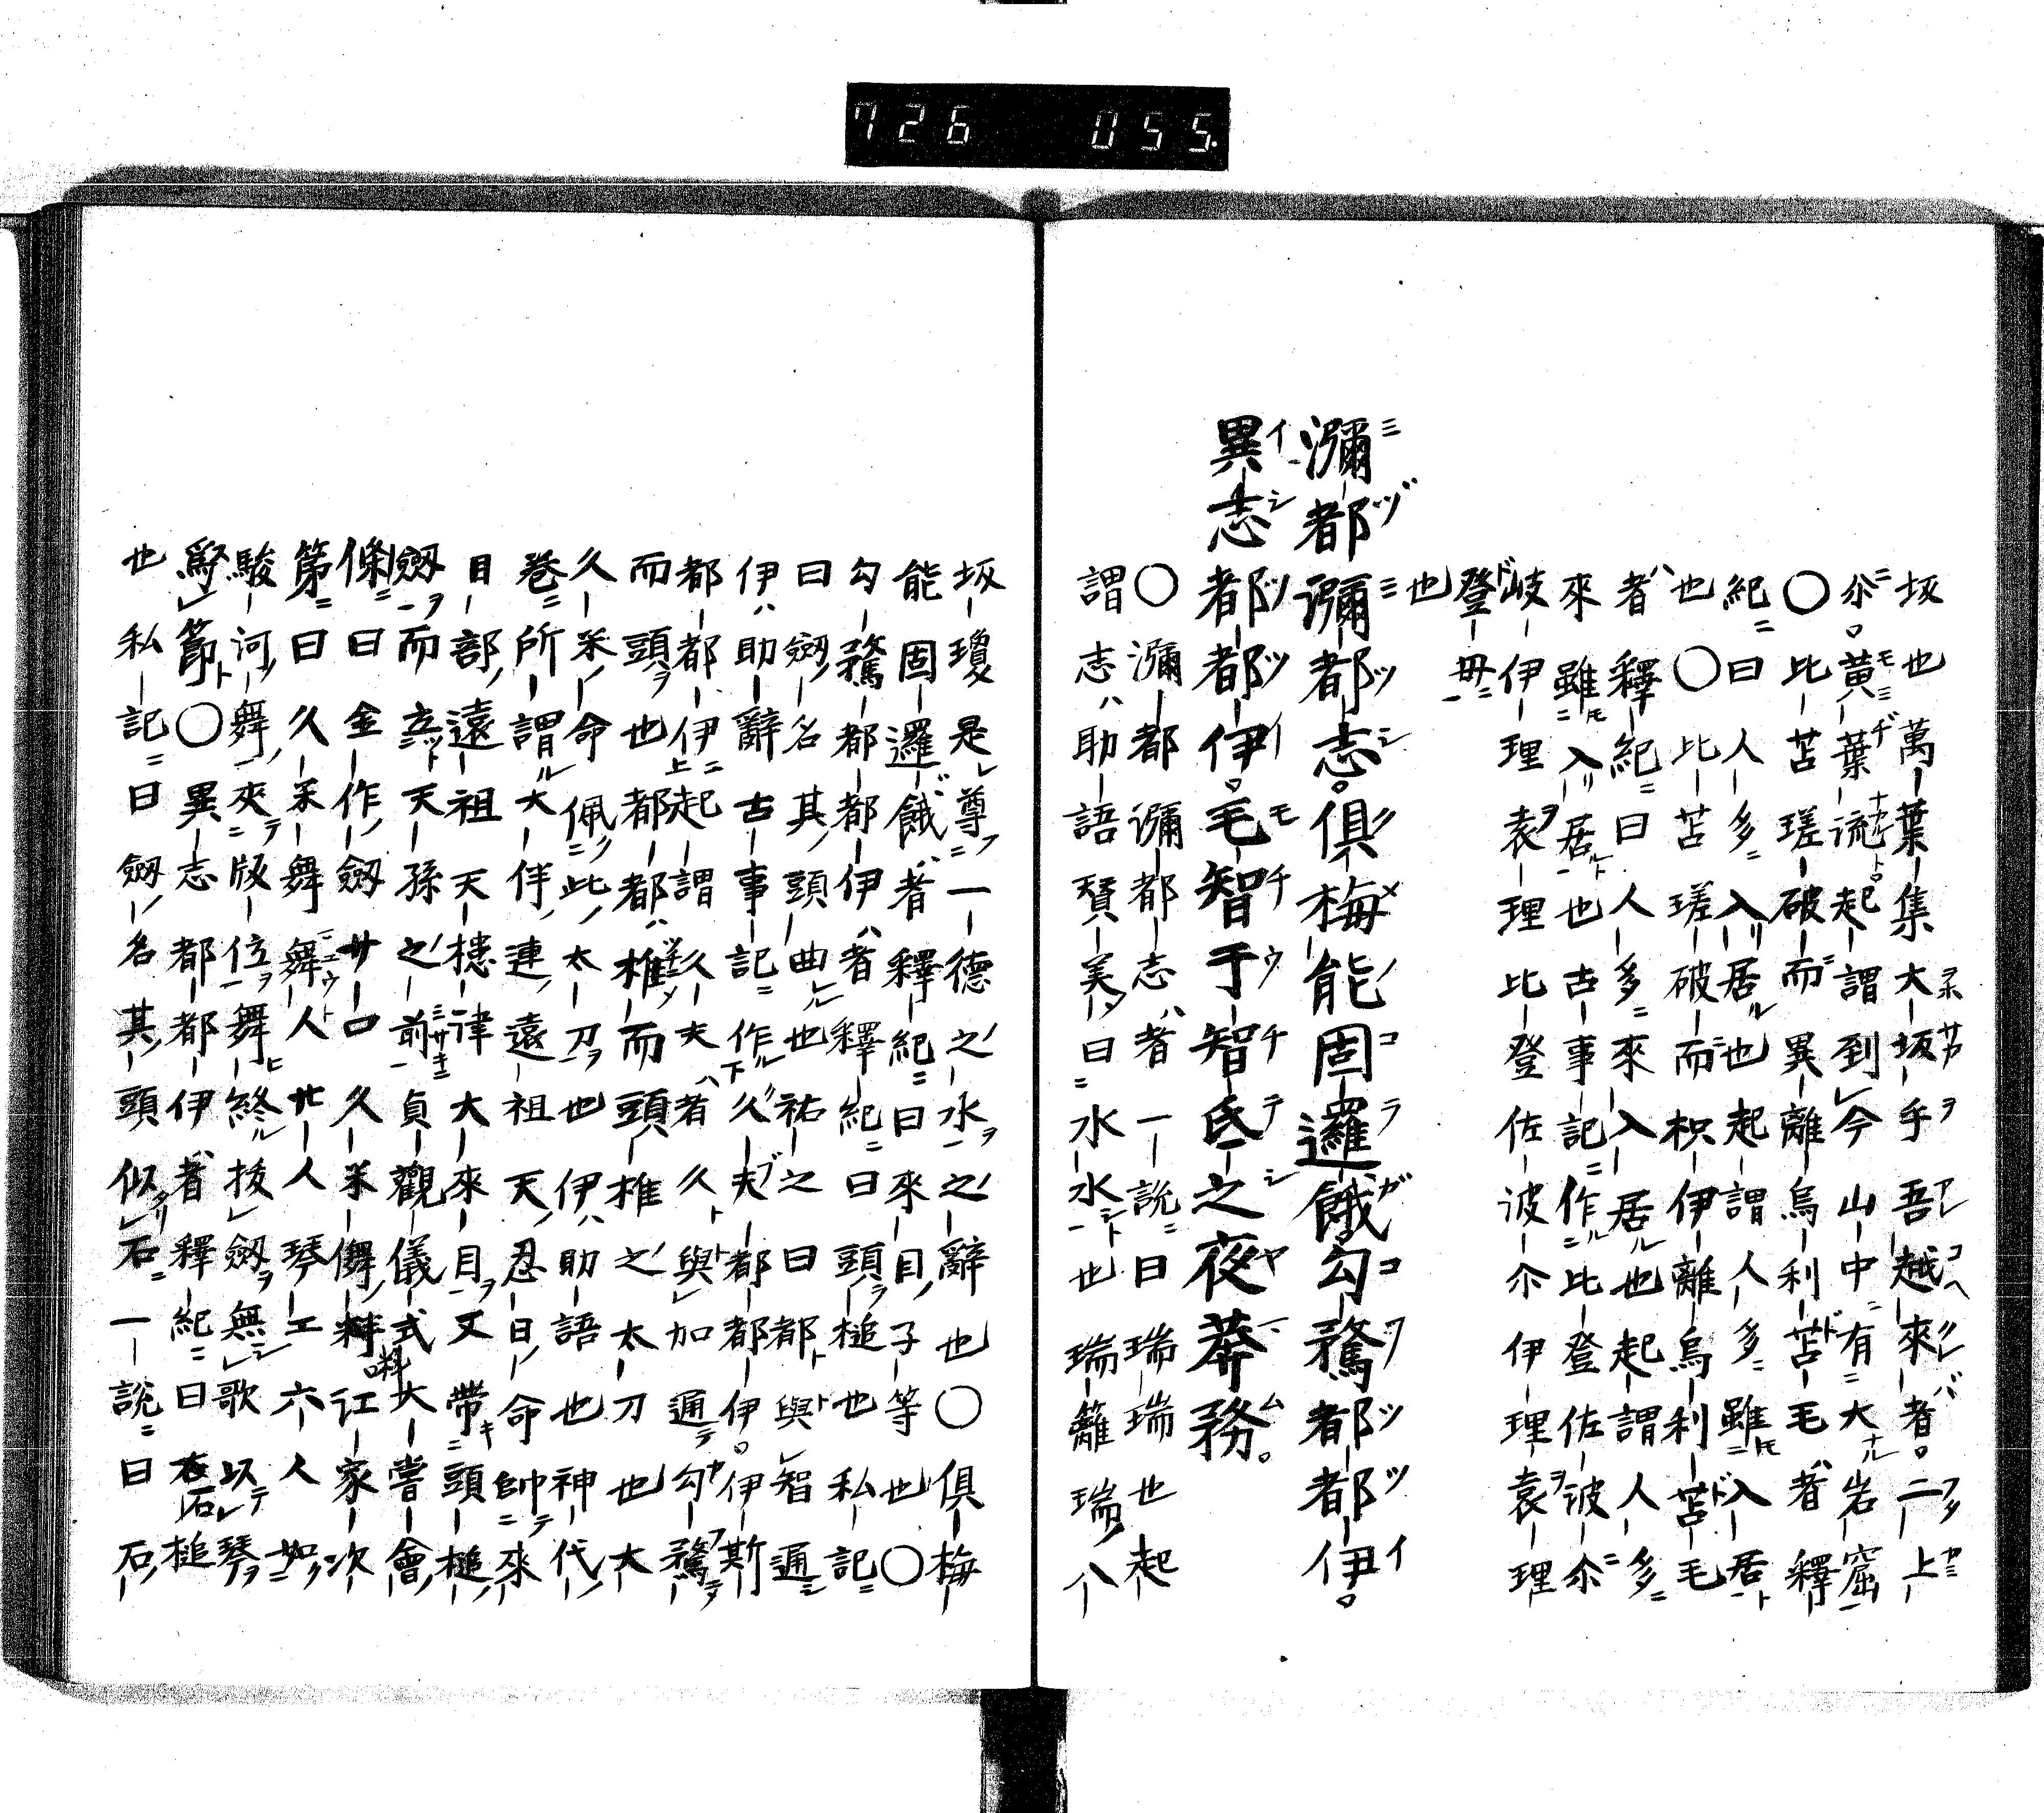 726 055.
坂也萬葉集大坂乎吾越來者二上
尒黄葉流起謂到今山中有大岩窟
〇比苫瑳破而異離烏利苫毛者釋
紀曰人多入居也起謂人多雖入居
也〇比苫瑳破而枳伊離烏利苫毛
者釋紀曰人多來入居也起謂人多
來雖入居也古事記作比登佐波尒
岐伊理袁理比登佐波尒伊理袁理
登毋
也
瀰都瀰都志倶梅能固邏餓勾騖都都伊
異志都都伊毛智于智氐之夜莽務
〇瀰都瀰都志者一說曰瑞瑞也起
謂志助語賛美曰水水也瑞籬瑞八
坂瓊是尊一德之水之辭也〇倶梅
能固邏餓者釋紀曰來目子等也〇
勾騖都都伊者釋紀曰頭槌也私記
曰劔名其頭曲也祐之曰都與智通
伊助辭古事記作久夫都都伊伊斯
都都伊起謂久夫者久與加通勾騖
而頭也都都椎而頭椎之太刀也大
久米命佩此太刀也伊助語也神代
卷所謂大伴連遠祖天忍日命帥來
目部遠祖天槵津大來目又帶頭槌
劔而立天孫之前貞觀儀式大嘗會
條曰金作劔廿口久米儛料江家次
第曰久米舞舞人廿人琴工六人如
駿河舞夾版位舞終拔劔無歌以琴
爲節〇異志都都伊者釋紀曰石槌
也私記曰劔名其頭似石一說曰石